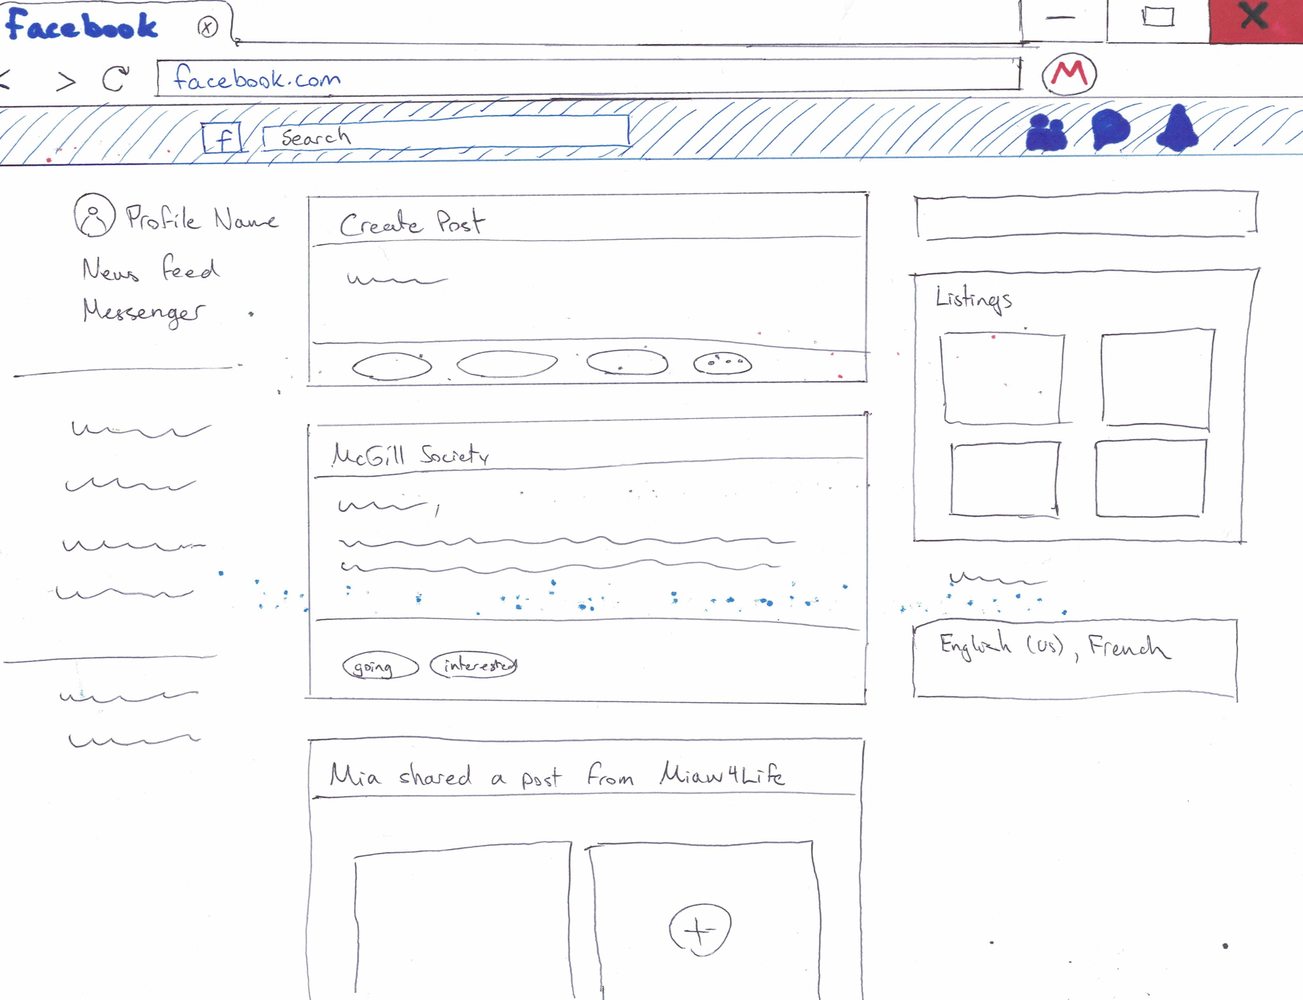 facebook
facebook.com
M
f
Search
Profile Name
News feed
Messenger
Create Post
McGill Society
going
interested
Mia shared a post from Miaw4Life
Listings
English (US), French